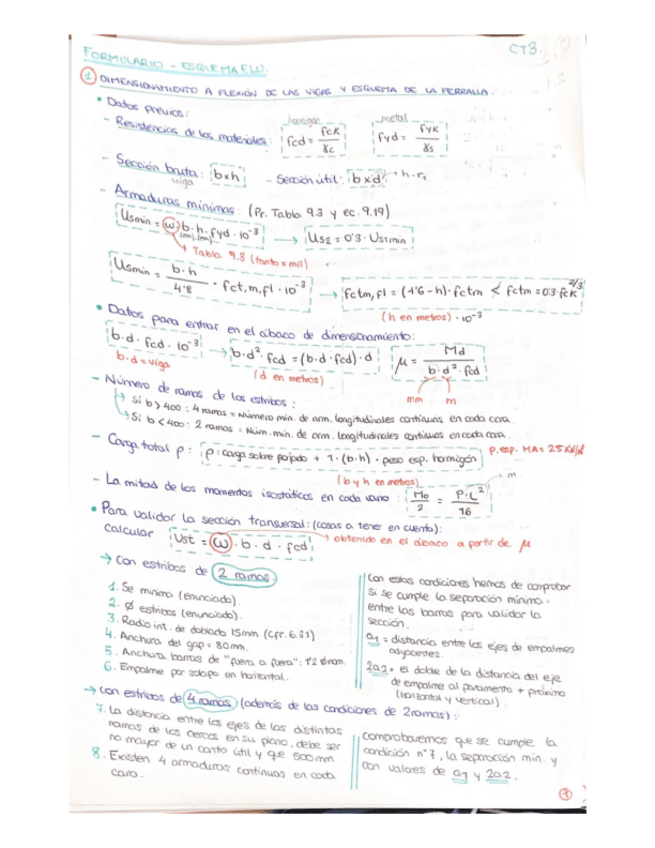 FORMULARIO - ESQUEMA ELU. CT3.
① DIMENSIONAMIENTO A FLEXIÓN DE LAS VIGAS Y ESQUEMA DE LA FERRALLA.
• Datos previos:
- Resistencias de los materiales: hormigón fcd = fck / γc metal fyd = fyk / γs
- Sección bruta: b×h viga - Sección útil: b×d → h-r₁
- Armaduras mínimas: (Pr. Tabla 9.3 y ec. 9.19)
Usmin = ω · b · h · fyd · 10⁻³ → Us2 = 0'3 · Us1min
(mm) (mm)
→ Tabla 9.3 (tanto x mil)
Usmin = b · h / 4'8 · fct,m,fl · 10⁻³ → fctm,fl = (1'6 - h) · fctm < fctm = 0'3 · fck^2/3
(h en metros) · 10⁻³
• Datos para entrar en el ábaco de dimensionamiento:
b · d · fcd · 10⁻³ → b · d² · fcd = (b · d · fcd) · d μ = Md / b · d² · fcd
b · d = viga (d en metros) mm m
- Número de ramas de los estribos:
↳ Si b > 400 : 4 ramas = Número min. de arm. longitudinales continuas en cada cara.
↳ Si b < 400 : 2 ramas = Núm. min. de arm. longitudinales continuas en cada cara.
- Carga total p : p = carga sobre forjado + 1 · (b · h) · peso esp. hormigón p. esp. MA = 25
(b y h en metros) m
- La mitad de los momentos isostáticos en cada vano : Mo / 2 = P · L² / 16
• Para validar la sección transversal: (cosas a tener en cuenta):
calcular Ust = ω · b · d · fcd → obtenido en el ábaco a partir de μ
→ con estribos de 2 ramas:
1. Se mínimo (enunciado).
2. Ø estribos (enunciado).
3. Radio int. de doblado 15mm (Cfr. 6.31)
4. Anchura del gap = 80mm.
5. Anchura barras de "fuera a fuera": 1'2 Ø nom.
6. Empalme por solapo en horizontal.
Con estas condiciones hemos de comprobar
si se cumple la separación mínima
entre las barras para validar la
sección.
a1 = distancia entre los ejes de empalmes
adyacentes.
2a2 = el doble de la distancia del eje
de empalme al paramento + próximo
(horizontal y vertical).
→ con estribos de 4 ramas (además de las condiciones de 2 ramas):
7. La distancia entre los ejes de las distintas
ramas de los cercos en su plano, debe ser
no mayor de un canto útil y que 500mm
8. Existen 4 armaduras continuas en cada
cara.
Comprobaremos que se cumple la
condición nº7, la separación min. y
con valores de a1 y 2a2.
①